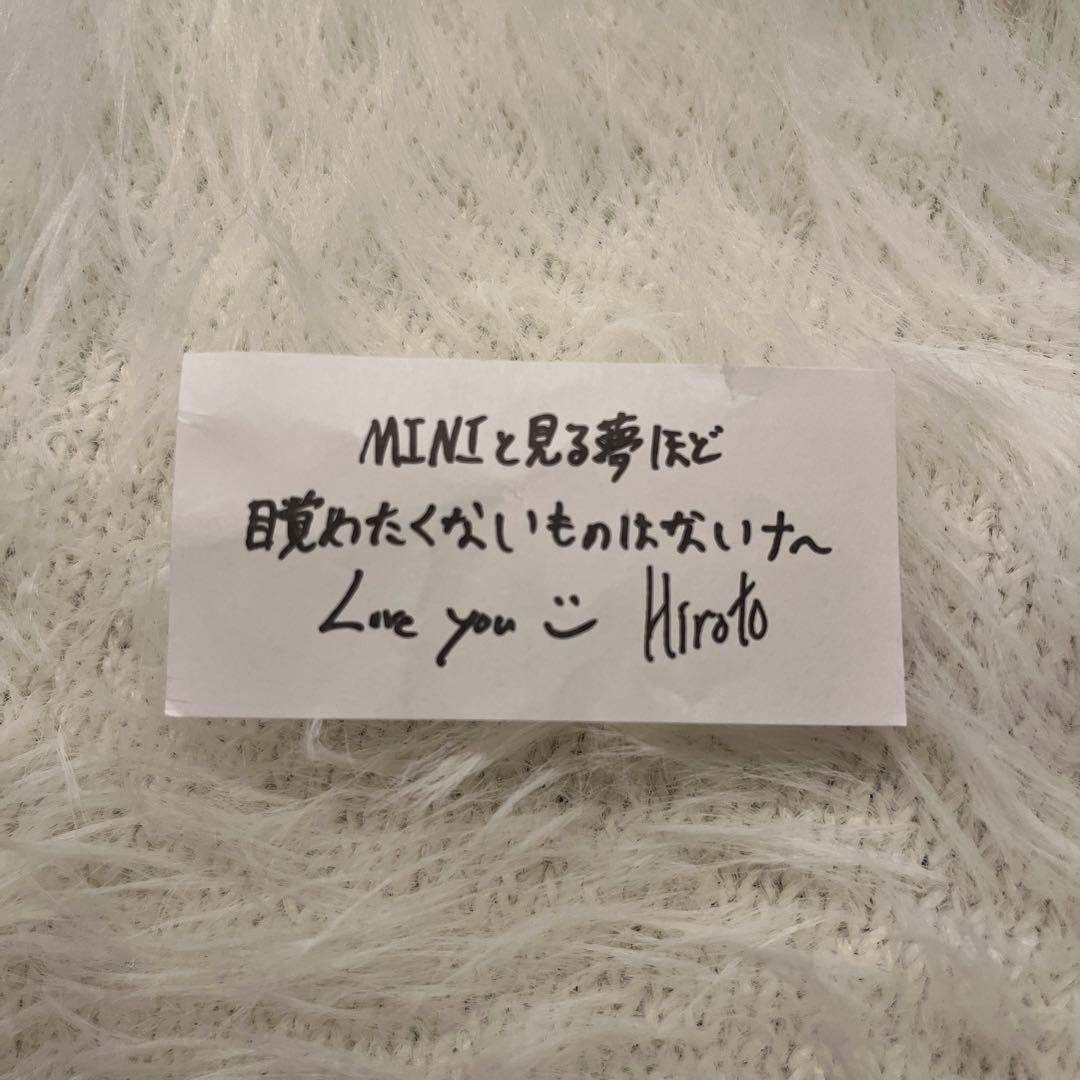 MINIと見る夢ほど
目覚めたくないものはないナ〜
Love you :) Hiroto